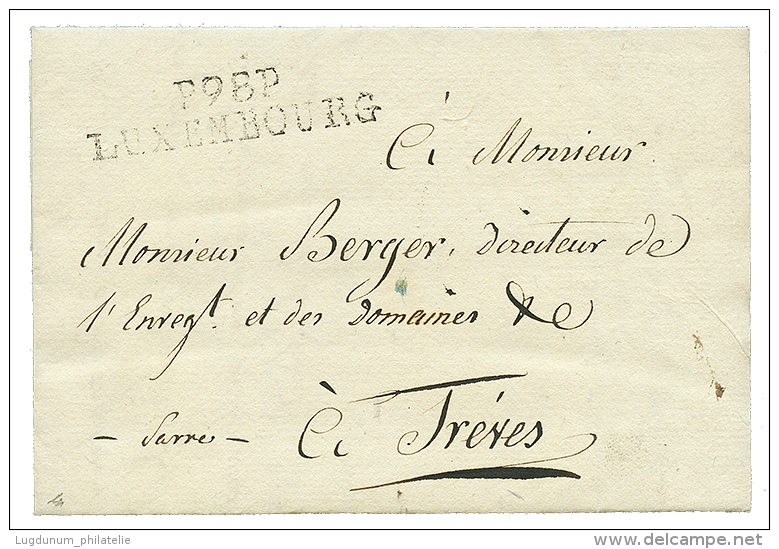 P98P
LUXEMBOURG
à Monsieur
Monsieur Berger, Directeur de
l'Enregt. et des Domaines &c
- Sarre - à Trèves
Lugdunum_philatelie
delcampe.net